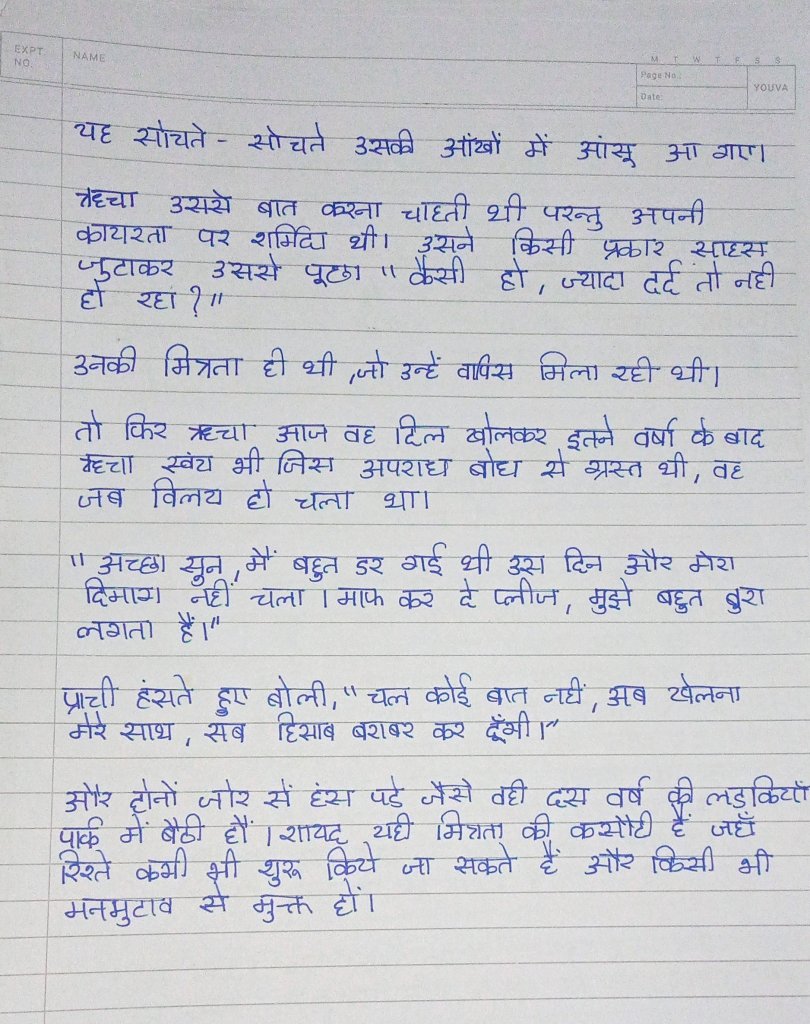 EXPT. NO.
NAME
M T W T F S S
Page No.:
Date:
YOUVA
यह सोचते - सोचते उसकी आंखों में आंसू आ गए।
ऋचा उससे बात करना चाहती थी परन्तु अपनी
कायरता पर शर्मिंदा थी। उसने किसी प्रकार साहस
जुटाकर उससे पूछा "कैसी हो, ज्यादा दर्द तो नही
हो रहा ?"
उनकी मित्रता ही थी ,जो उन्हें वापिस मिला रही थी।
तो फिर ऋचा आज वह दिल खोलकर इतने वर्षा के बाद
ऋचा स्वंय भी जिस अपराध बोध से ग्रस्त थी, वह
जब विलय हो चला था।
"अच्छा सुन, मैं बहुत डर गई थी उस दिन और मेरा
दिमाग नहीं चला । माफ कर दे प्लीज, मुझे बहुत बुरा
लगता हैं।"
प्राची हंसते हुए बोली,"चल कोई बात नहीं, अब खेलना
मेरे साथ, सब हिसाब बराबर कर दूँगी।"
और दोनों जोर सें हंस पडे जैसे वही दस वर्ष की लड़कियाँ
पार्क में बैठी हों । शायद यही मित्रता की कसौटी हैं जहाँ
रिश्ते कभी भी शुरू किये जा सकते हैं और किसी भी
मनमुटाव से मुक्त हों।